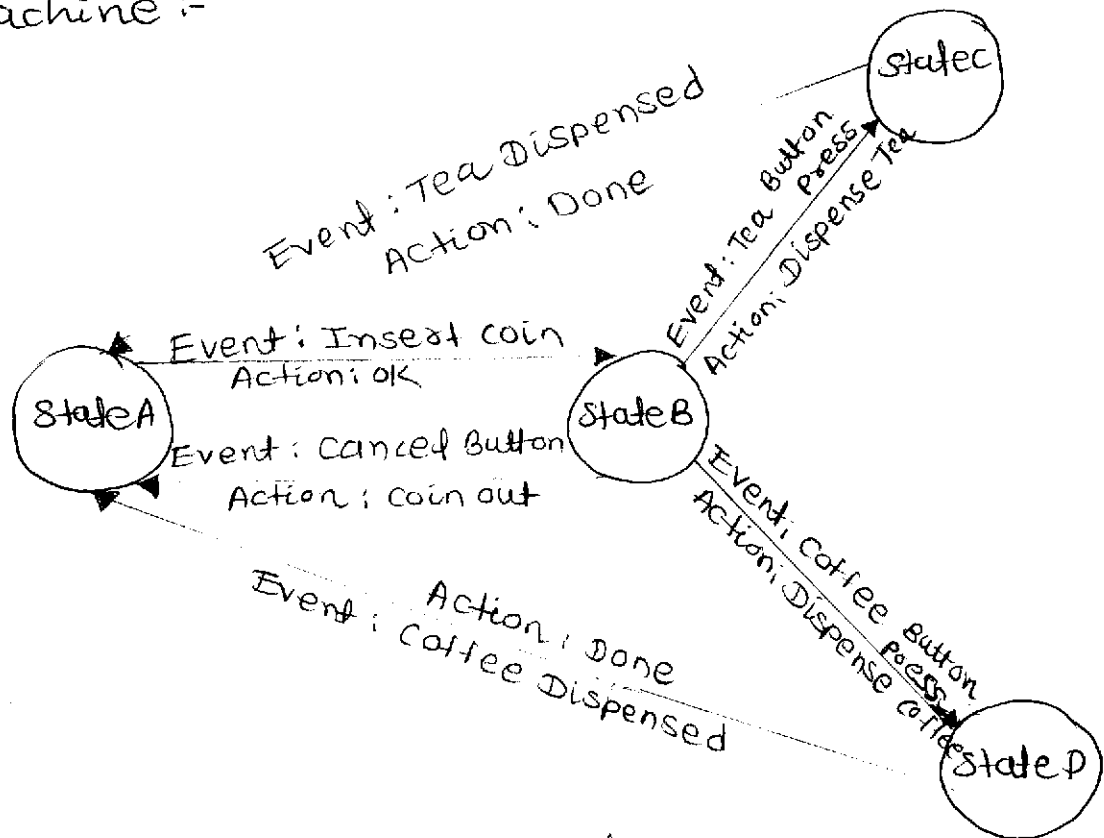 achine :-
State C
Event : Tea Dispensed
Action : Done
Event : Tea Button
Press
Action : Dispense Tea
Event : Insert coin
Action : ok
State A
State B
Event : Cancel Button
Action : coin out
Event : Coffee Button
Press
Action : Dispense Coffee
Action : Done
Event : Coffee Dispensed
State D